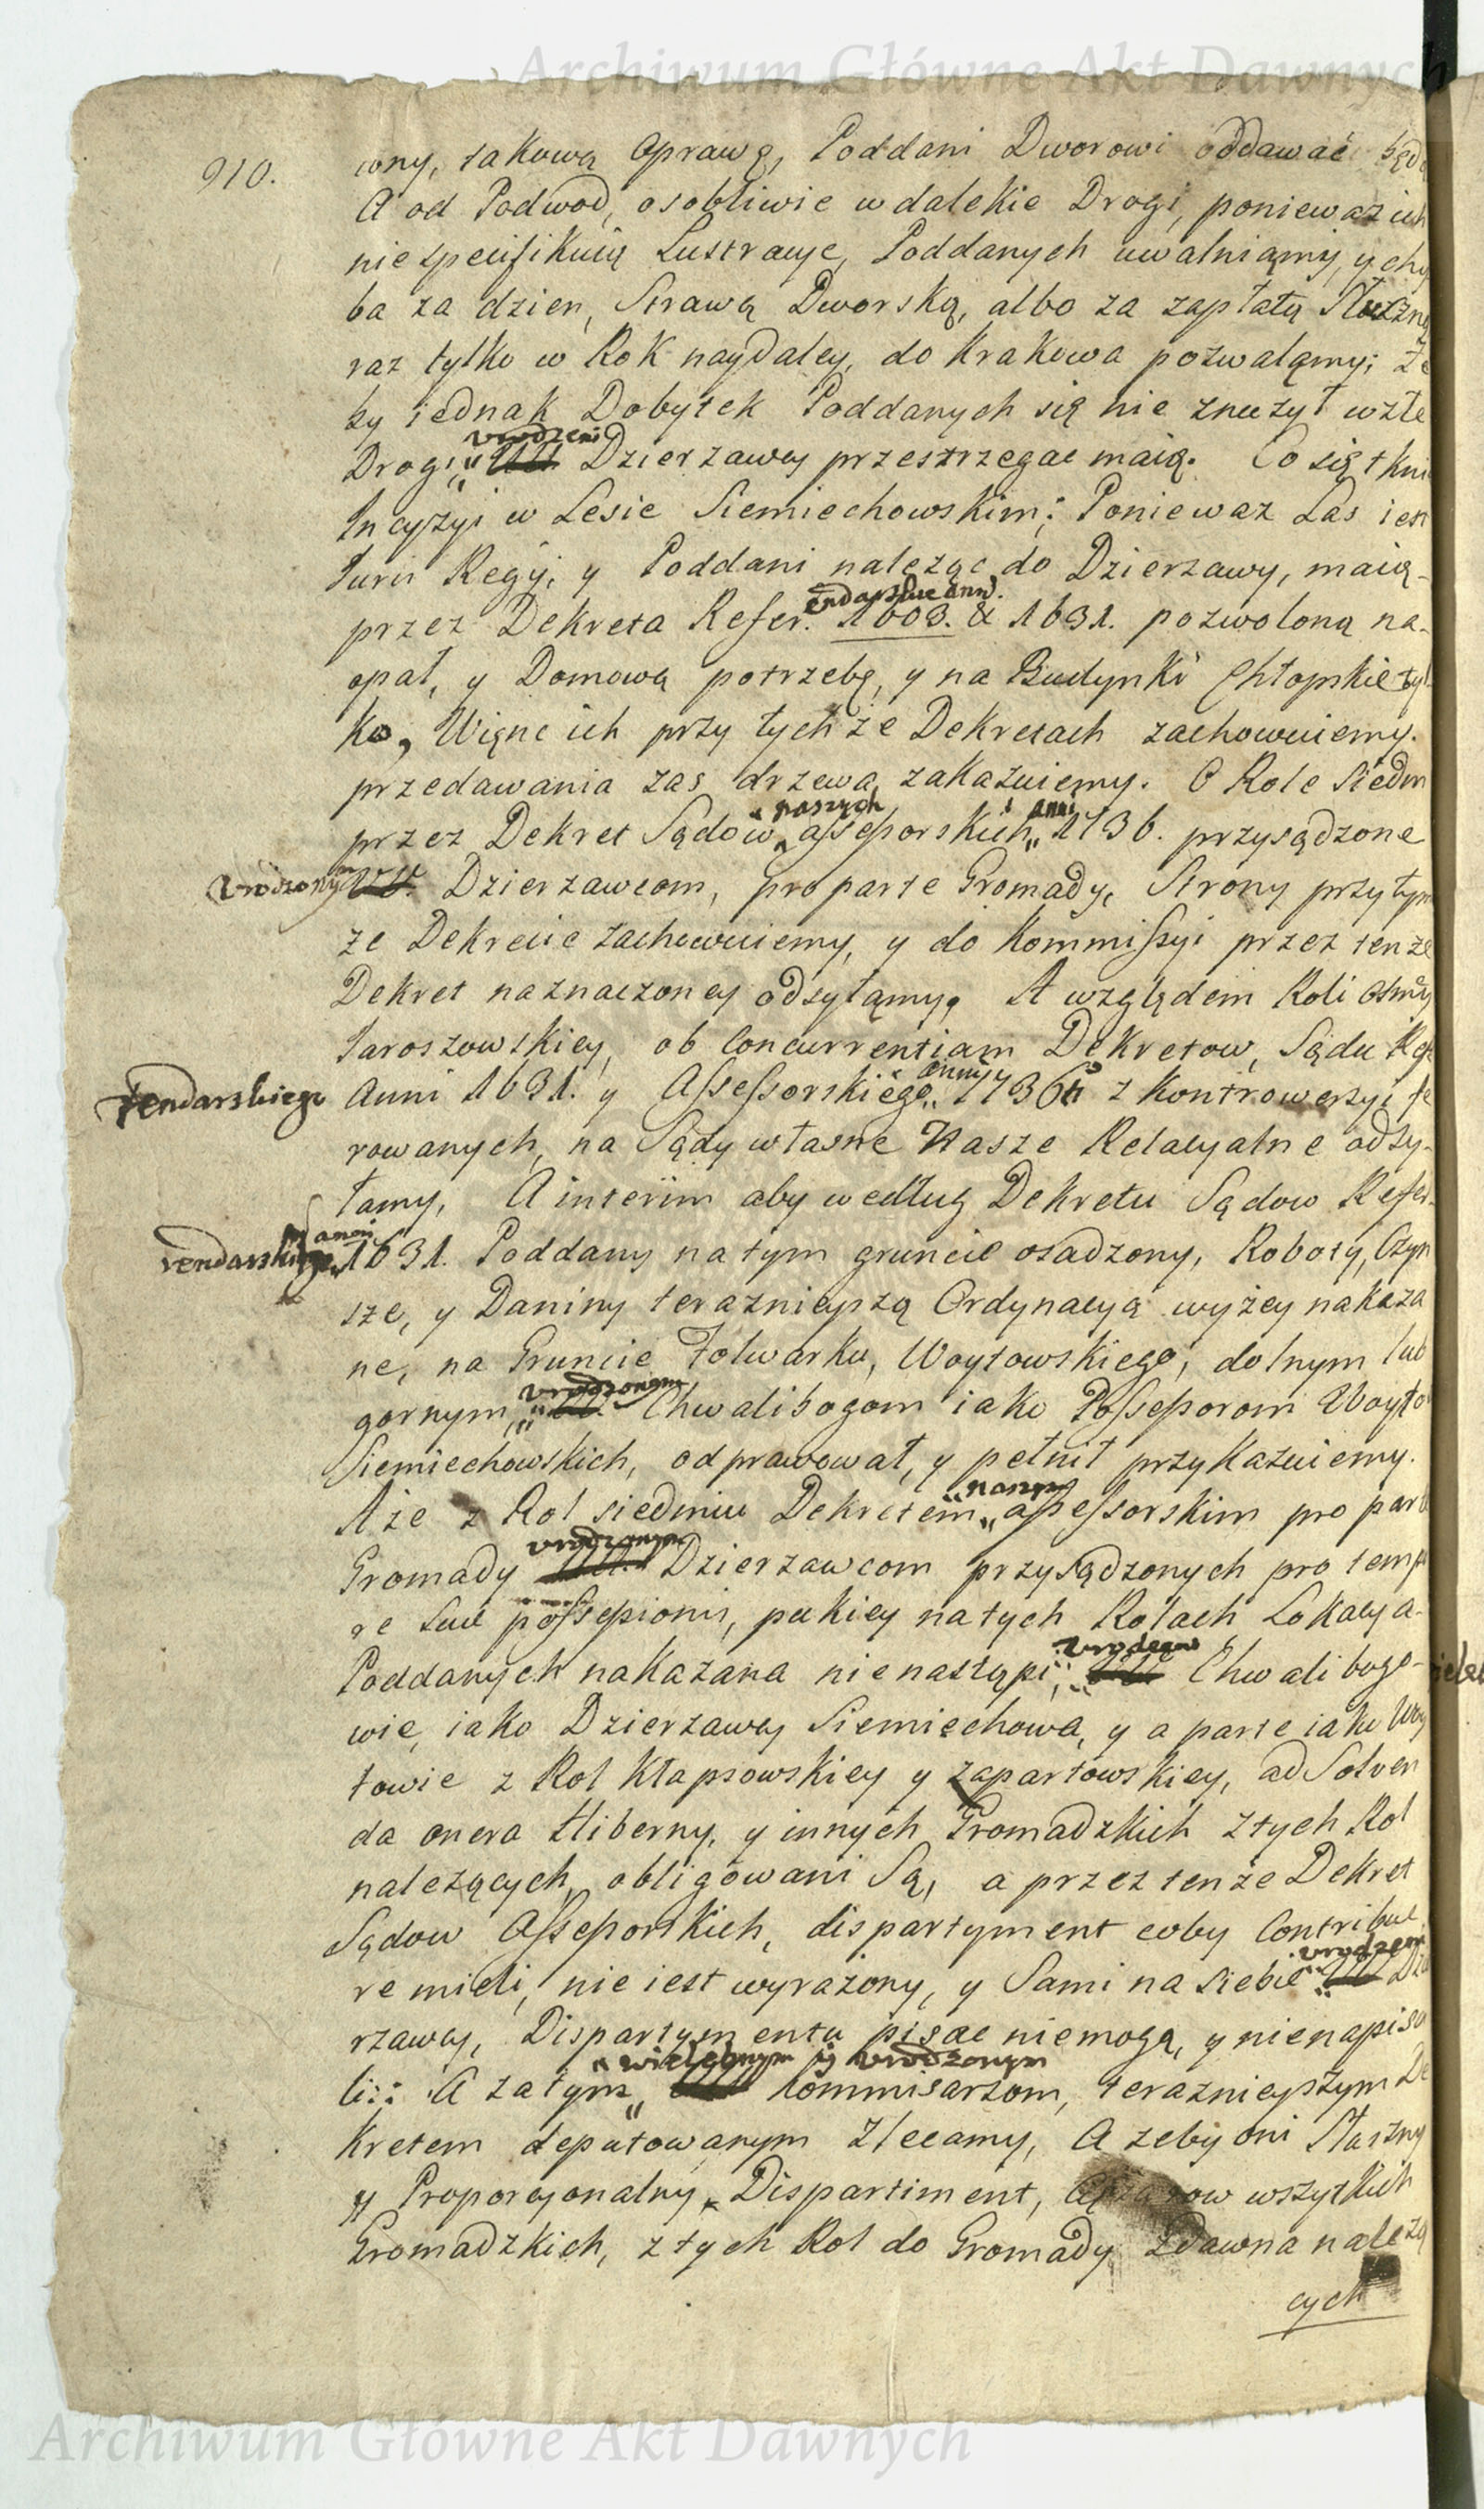 Archiwum Główne Akt Dawnych
910.
wny, takową Oprawę, Poddani Dworowi oddawać będą
A od Podwod, osobliwie w dalekie Drogi, poniewaz ich
nie specifikuią Lustracye, Poddanych uwalniamy, y chy
ba za dzien, Strawą Dworską, albo za zapłatą Słuszną
raz tylko w Rok naydaley, do Krakowa pozwalamy; Ze
by iednak Dobytek Poddanych się nie znużył w złe
urodzeni
Drogi, Dzierzawcy przestrzegac maią. Co się tknie
Incyzyi w Lesie Siemiechowskim; Poniewaz Las iest
Juris Regÿ, y Poddani naleząc do Dzierzawy, maią
endarskie ann.
przez Dekreta Refer. 1603. & 1631. pozwoloną na
opał, y Domową potrzebę, y na Budynki Chłopskie tyl
ko, Więnc ich przy tychże Dekretach zachowuiemy.
przedawania zas drzewa zakazuiemy. O Role Siedm
naszych anni
przez Dekret Sądow assessorskich 1736. przysądzone
urodzonym Dzierzawcom, pro parte Gromady, Strony przy tym
ze Dekrecie zachowuiemy, y do Kommissyi przez tenze
Dekret naznaczoney odsyłamy, A względem Roli osmey
Jaroszowskiey, ob Concurrentiam Dekretow, Sądu Refe
anni
rendarskiego Anni 1631. y Assessorskiego 1736 z kontrowersyi fe
rowanych, na Sądy własne Nasze Relacyalne odsy
łamy, A interim aby według Dekretu Sądow Refe
anni
rendarskiego 1631. Poddany na tym gruncie osadzony, Roboty, Czyn
sze, y Daniny teraznieyszą Ordynacyą wyżey nakaza
ne, na Gruncie Folwarku, Woytowskiego, dolnym lub
urodzonem
gornym, Chwalibogom iako Possessorom Woyto
Siemiechowskich, odprawował, y pełnił przykazuiemy.
naszym
A że z Rol siedmiu Dekretem assessorskim pro parte
urodzonym
Gromady Dzierzawcom przysądzonych pro tempo
re suae possessionis, pokiey na tych Rolach Lokacya
urodzeni
Poddanych nakazana nie nastąpi, Chwalibogo
wie, iako Dzierzawcy Siemiechowa, y a parte iako Woy
towie z Rol Kłapsowskiey y Zapartowskiey, ad Solven
da onera Hiberny, y innych Gromadzkich z tych Rol
nalezących, obligowani Są, a przez tenże Dekret
Sądow Assessorskich, dispartyment coby Contribue
urodzeni
re mieli, nie iest wyrażony, y Sami na siebie Dzie
rzawcy, Dispartymentu pisac niemogą, y nienapisa
wielebnym y urodzonym
li: A zatym Kommisarzom, teraznieyszym De
kretem deputowanym Zlecamy, A zeby oni Słuszny
y Proporcyonalny, Dispartiment, Cięzarow wszytkich
Gromadzkich, z tych Rol do Gromady zdawna nalezą
cych
Archiwum Główne Akt Dawnych